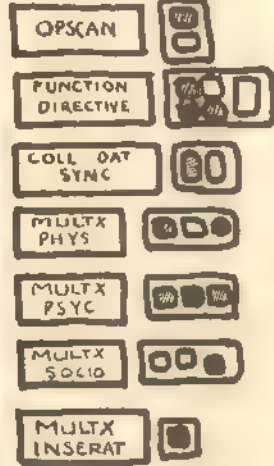 OPSCAN
FUNCTION
DIRECTIVE
COLL DAT
SYNC
MULTX
PHYS
MULTX
PSYC
MULTX
SOCIO
MULTX
INSERAT